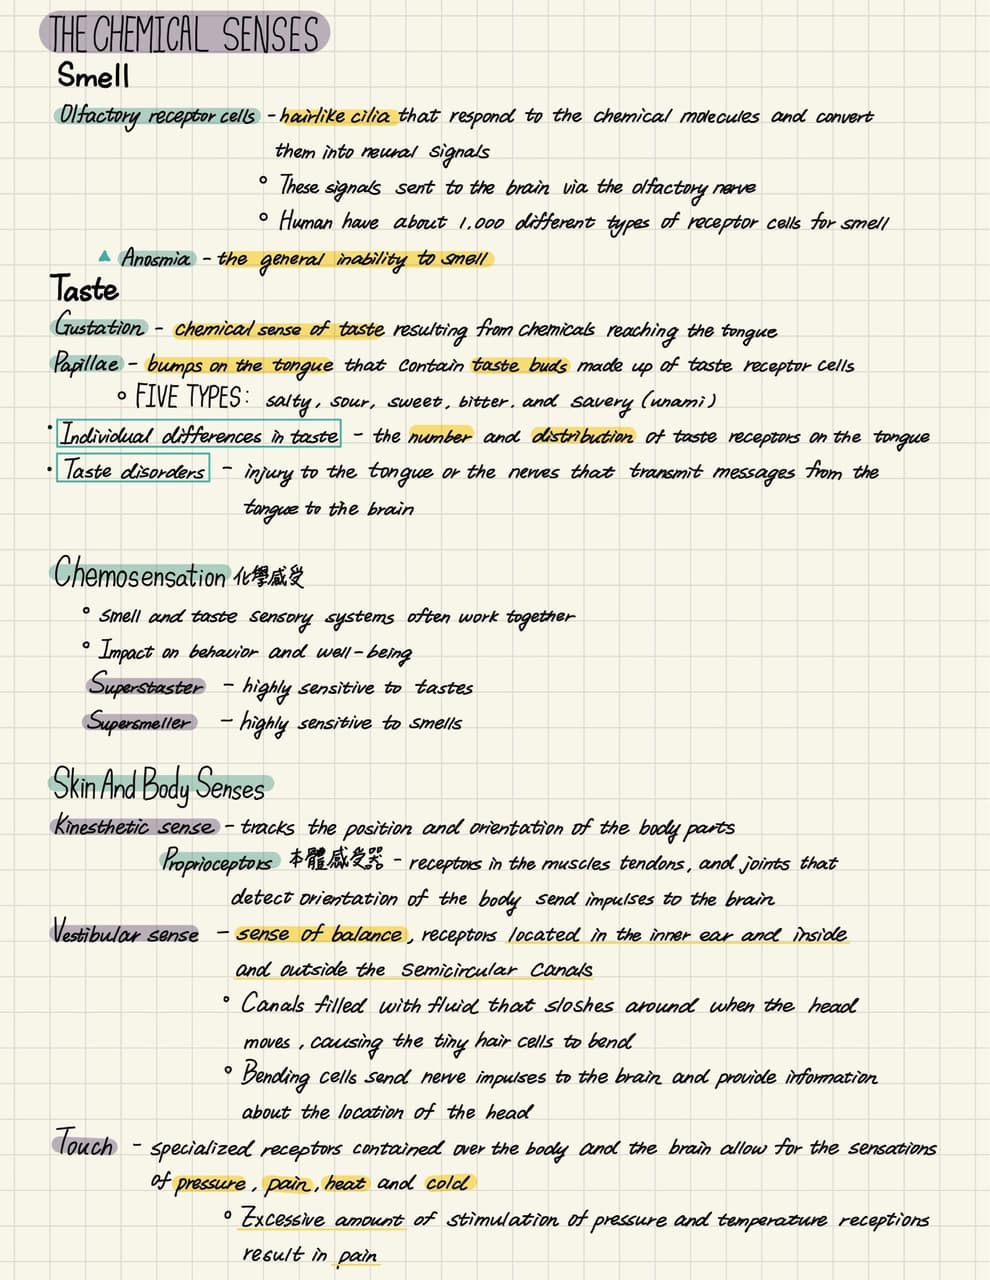 THE CHEMICAL SENSES
Smell
Olfactory receptor cells - hairlike cilia that respond to the chemical molecules and convert
them into neural signals
° These signals sent to the brain via the olfactory nerve
° Human have about 1,000 different types of receptor cells for smell
▲ Anosmia - the general inability to smell
Taste
Gustation - chemical sense of taste resulting from chemicals reaching the tongue
Papillae - bumps on the tongue that contain taste buds made up of taste receptor cells
° FIVE TYPES: salty, sour, sweet, bitter. and savery (unami)
· Individual differences in taste - the number and distribution of taste receptors on the tongue
· Taste disorders - injury to the tongue or the nerves that transmit messages from the
tongue to the brain
Chemosensation 化學感受
° smell and taste sensory systems often work together
° Impact on behavior and well-being
Superstaster - highly sensitive to tastes
Supersmeller - highly sensitive to smells
Skin And Body Senses
Kinesthetic sense - tracks the position and orientation of the body parts
Proprioceptors 本體感受器 - receptors in the muscles tendons, and joints that
detect orientation of the body send impulses to the brain
Vestibular sense - sense of balance, receptors located in the inner ear and inside
and outside the semicircular canals
° Canals filled with fluid that sloshes around when the head
moves, causing the tiny hair cells to bend
° Bending cells send nerve impulses to the brain and provide information
about the location of the head
Touch - specialized receptors contained over the body and the brain allow for the sensations
of pressure, pain, heat and cold
° Excessive amount of stimulation of pressure and temperature receptions
result in pain